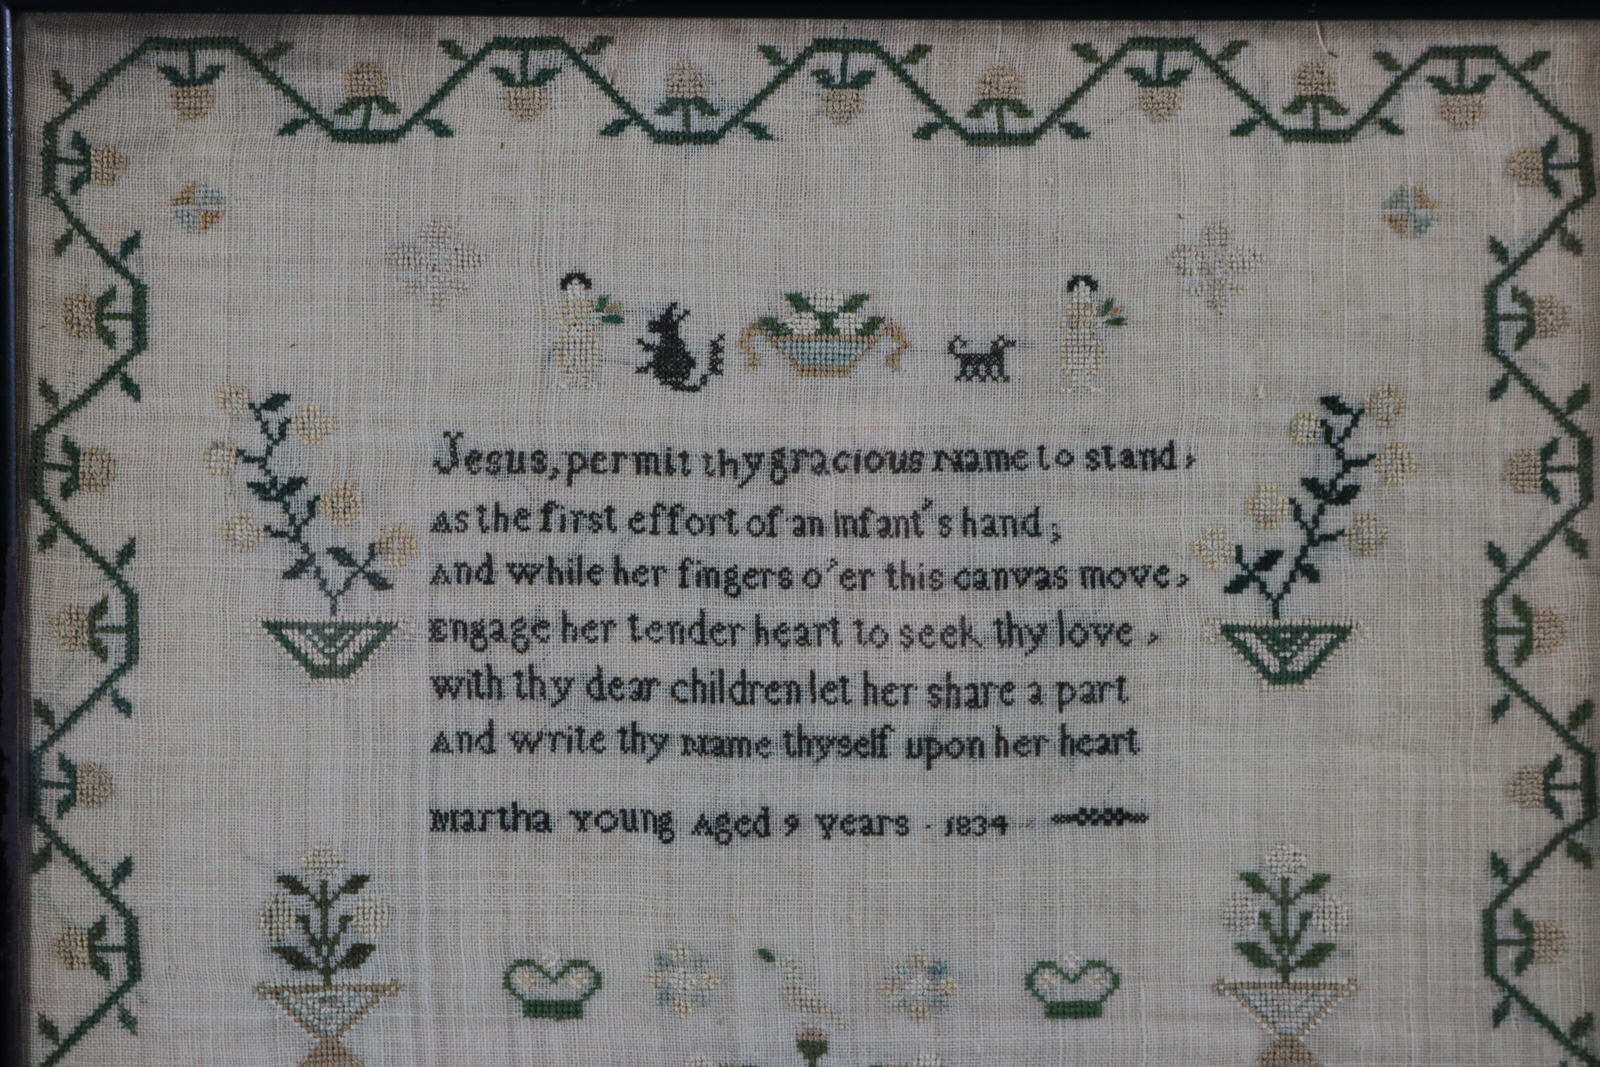 Jesus, permit thy gracious Name to stand,
As the first effort of an infant's hand;
And while her fingers o'er this canvas move,
Engage her tender heart to seek thy love,
with thy dear children let her share a part
And write thy Name thyself upon her heart
Martha Young Aged 9 years · 1834